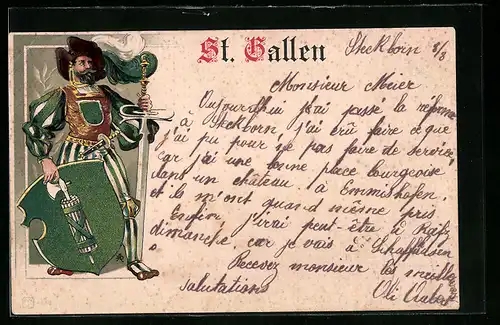 St. Gallen
Steckborn 8/3
Monsieur Meier
Aujourd'hui j'ai passé la réforme
à Steckborn, j'ai crû faire ce que
j'ai pu pour ne pas faire de service
car j'ai une bonne place bourgeoise
dans un château à Emmishofen,
et ils m'ont quand même pris
Enfin j'irai peut-être à
dimanche, car je vais à Schaffhausen
Recevez monsieur les meilleu
salutations